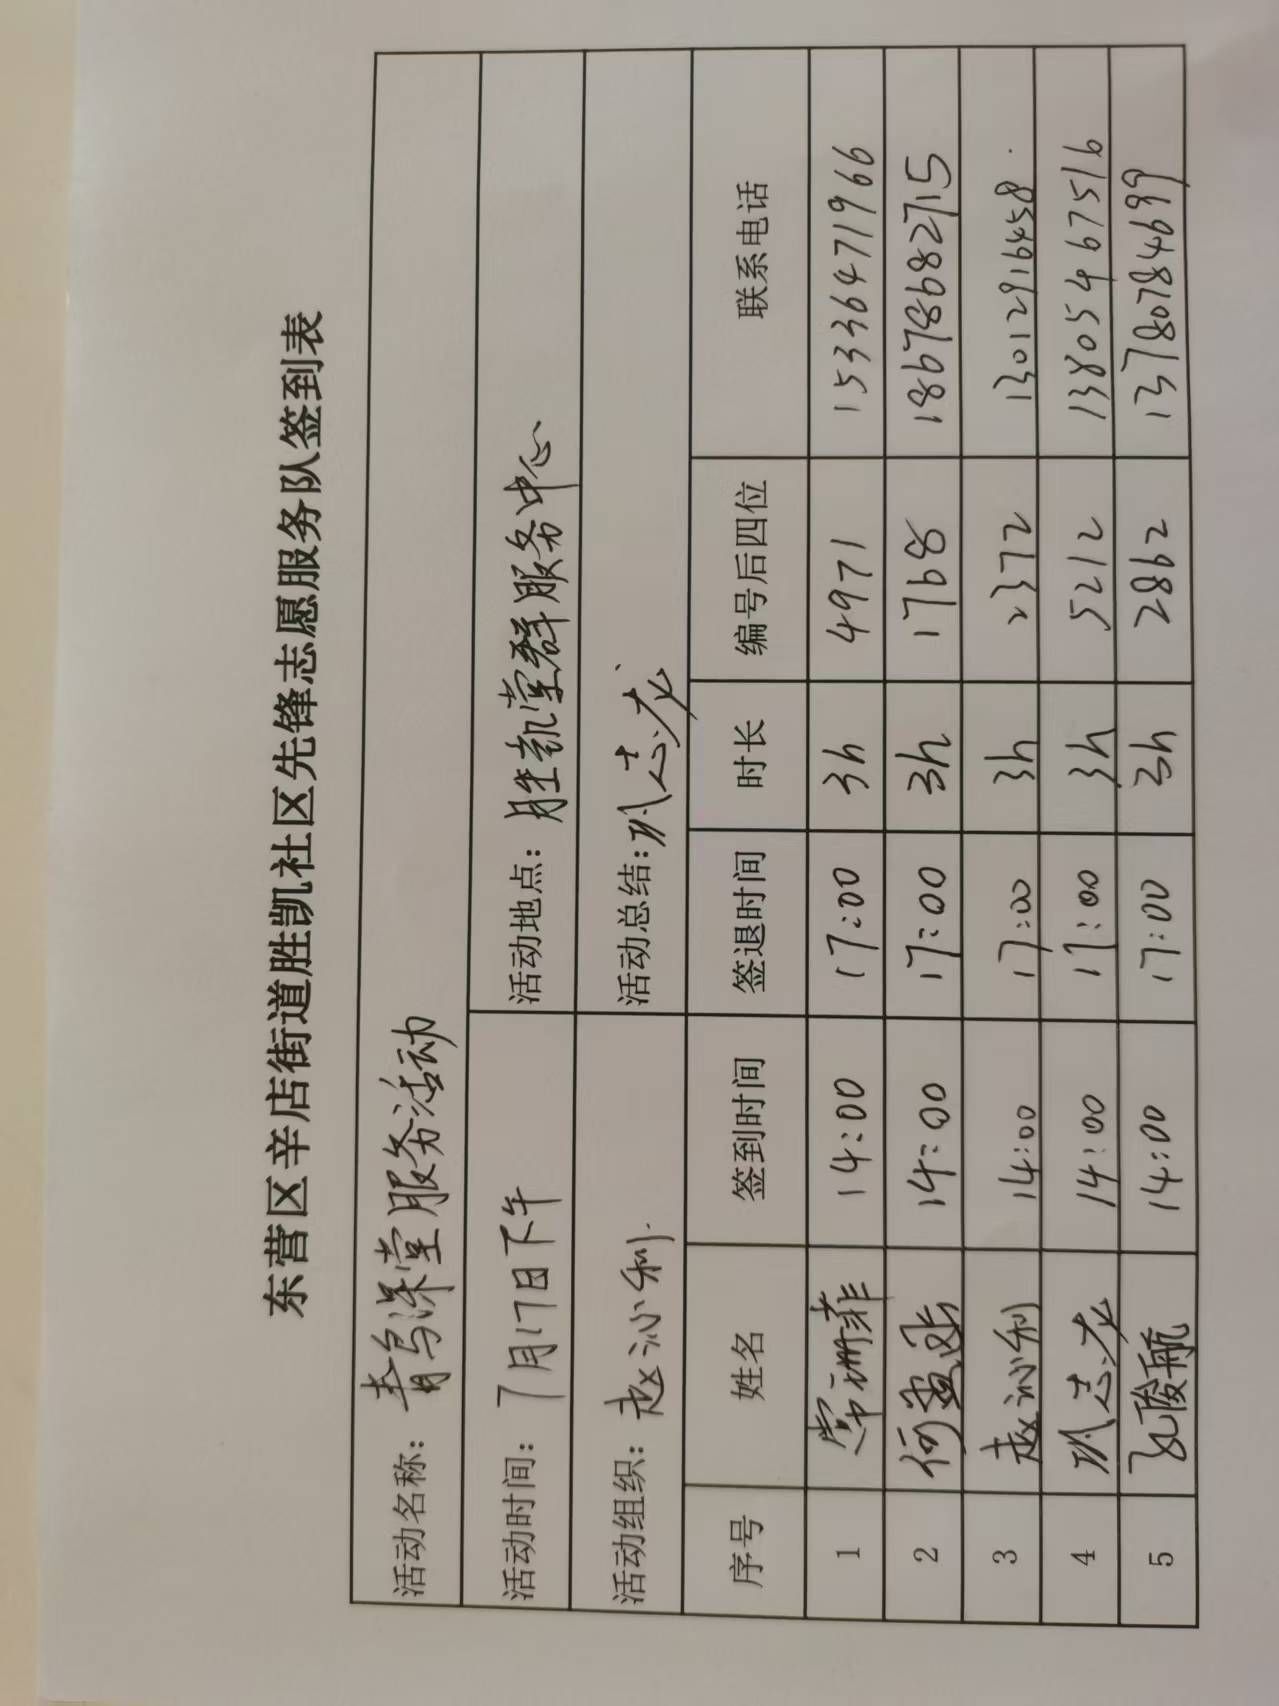 东营区辛店街道胜凯社区先锋志愿服务队签到表
活动名称：青鸟课堂服务活动
活动时间：7月17日下午 活动地点：胜凯党群服务中心
活动组织：赵沁利 活动总结：志龙
序号 姓名 签到时间 签退时间 时长 编号后四位 联系电话
1 常珊菲 14:00 17:00 3h 4971 15336471966
2 何 14:00 17:00 3h 1768 18678682715
3 赵沁利 14:00 17:00 3h 2372 13012916458
4 志龙 14:00 17:00 3h 5212 13805467516
5 孔俊航 14:00 17:00 3h 2862 13780784699